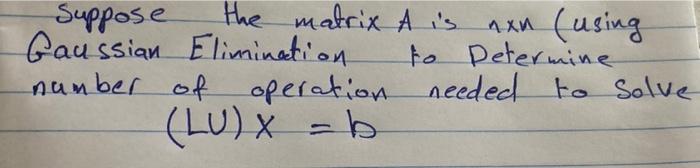 Suppose the matrix A is nxn (using
Gaussian Elimination to Determine
number of operation needed to Solve
(LU) X = b